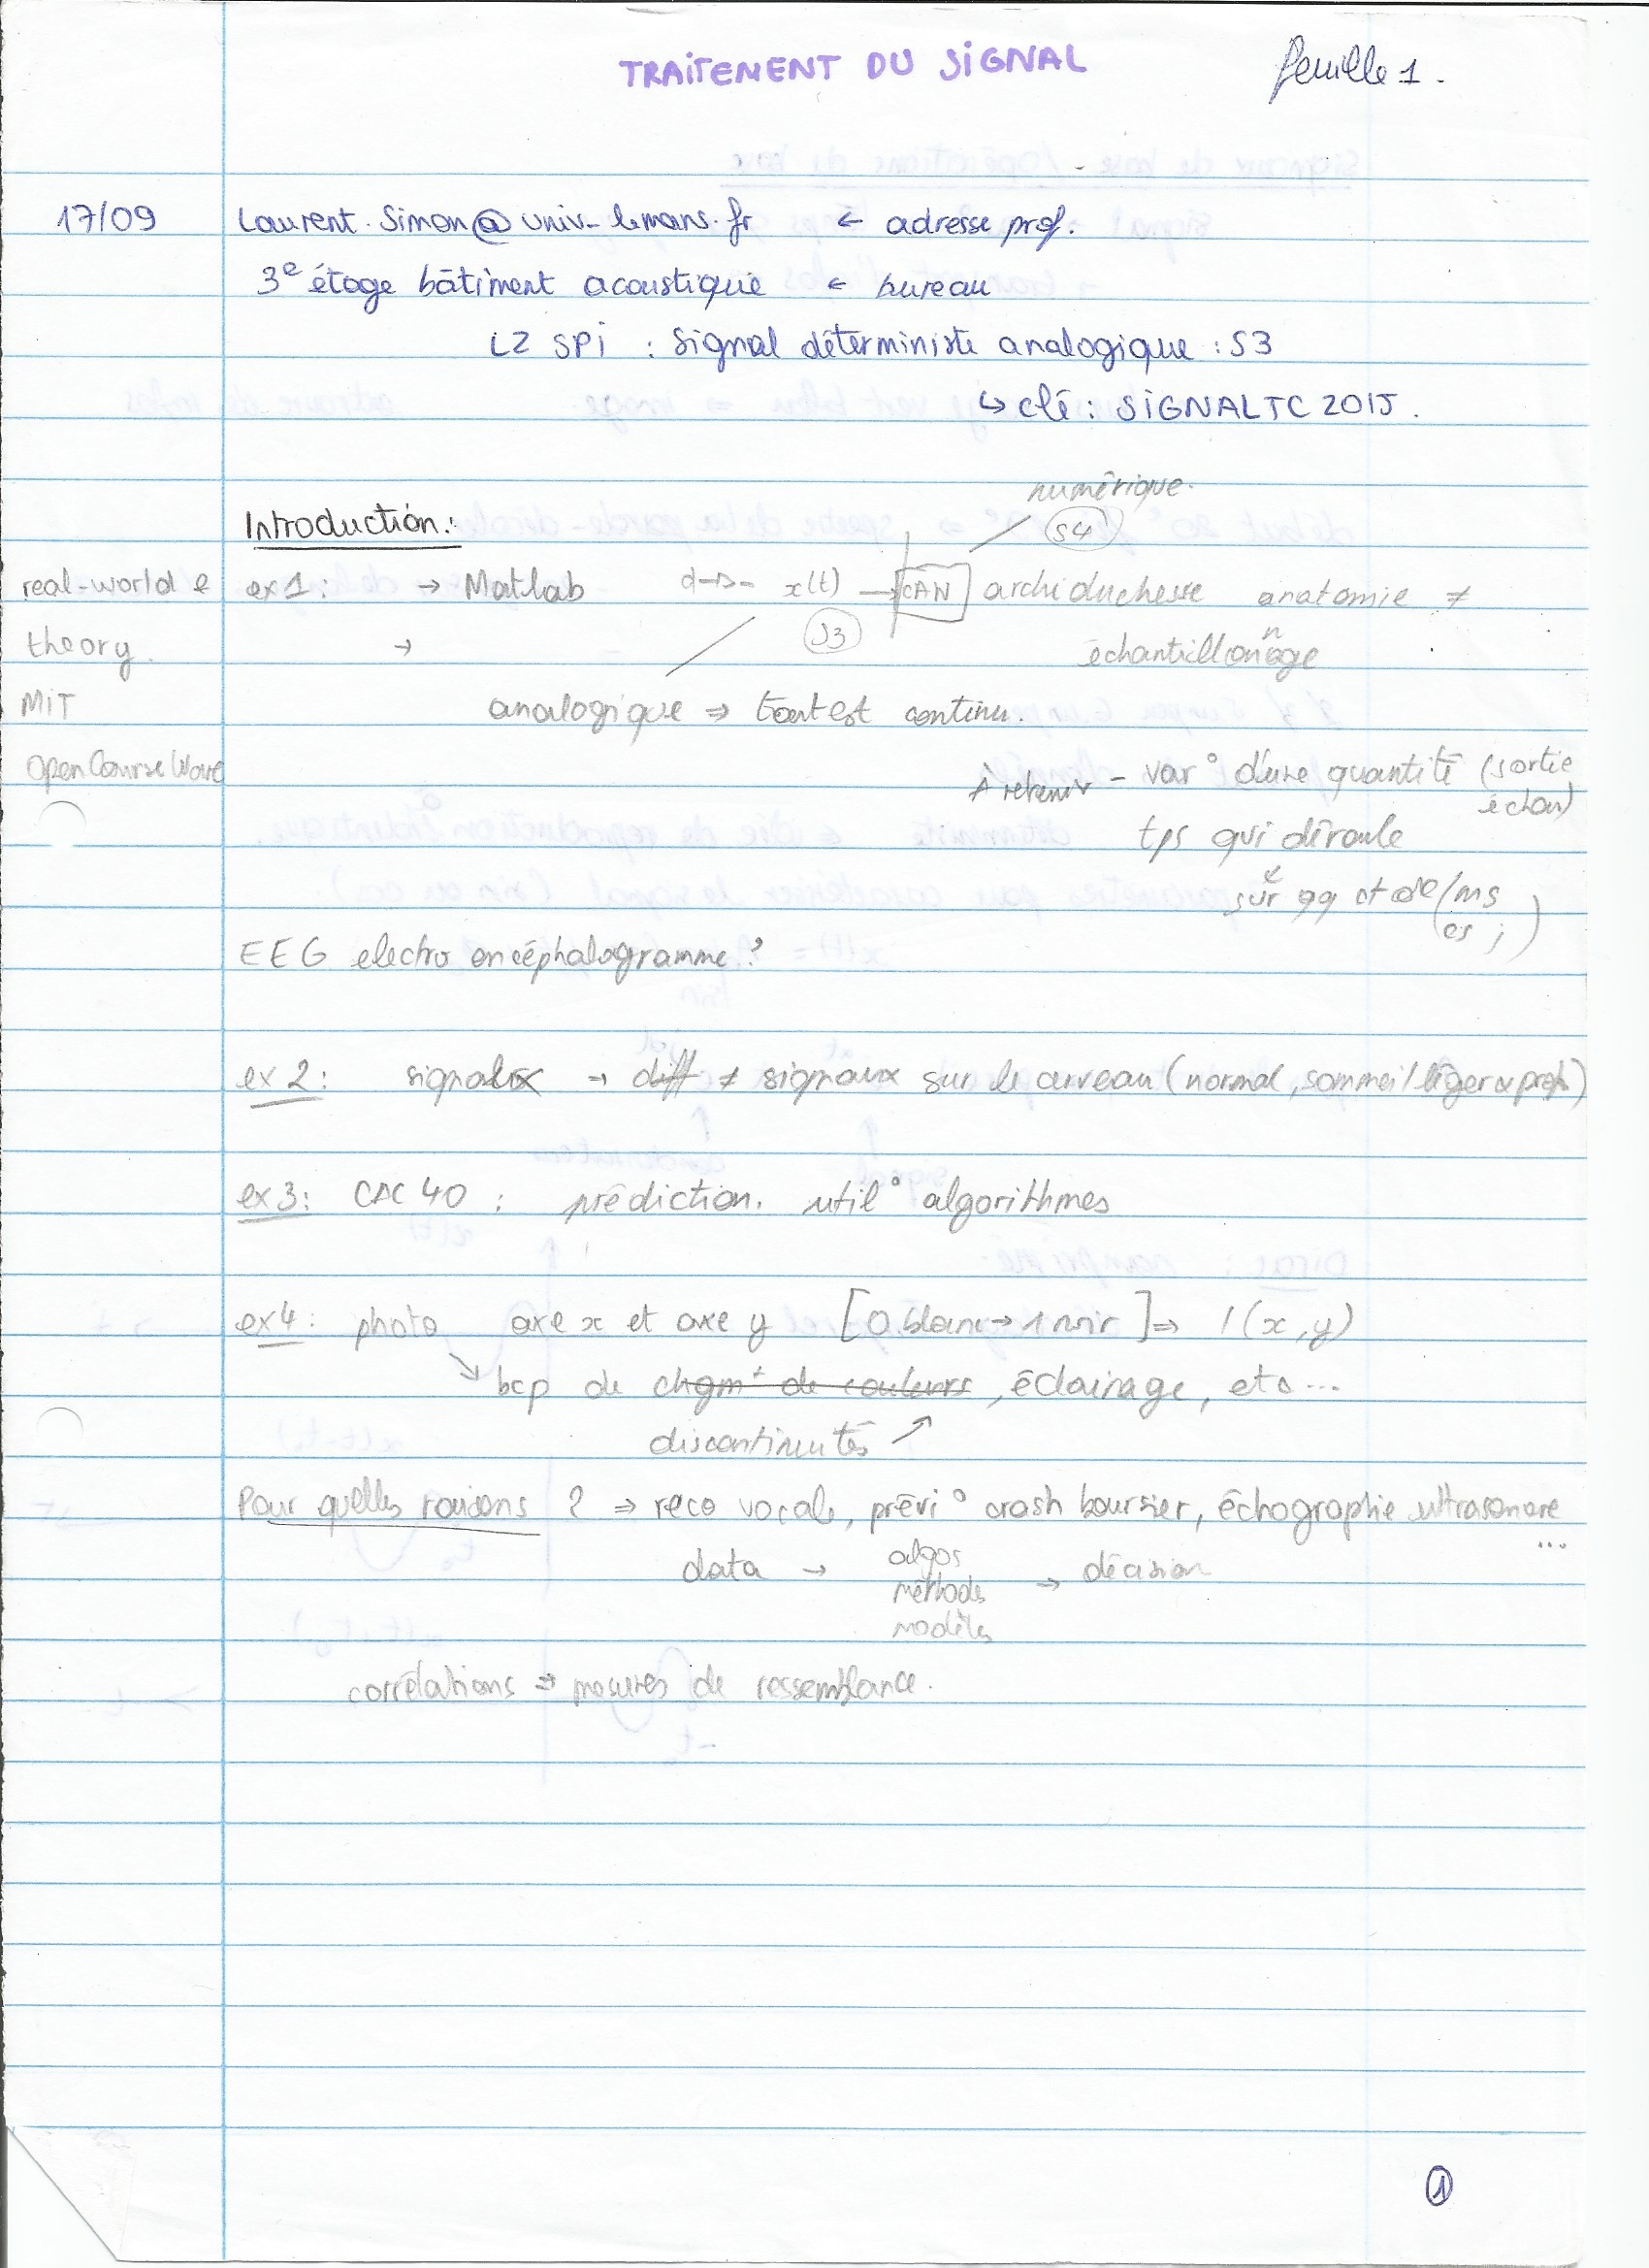 TRAITEMENT DU SIGNAL
feuille 1.
17/09 Laurent.Simon@univ-lemans.fr ← adresse prof.
3e étage bâtiment acoustique ← bureau
L2 SPi : Signal déterministe analogique : S3
↳ clé : SIGNALTC2015.
numérique.
Introduction : S4
real-world e ex1 : → Matlab x(t) → CAN archiduchesse anatomie ≠
theory. → S3 échantillonnage
MiT analogique ⇒ tout est continu.
OpenCourseWare À retenir - var° d'une quantité (sortie
échan)
tps qui déroule
sur qq
EEG electro encéphalogramme ?
ex 2 : signaux → diff ≠ signaux sur le cerveau (normal, sommeil léger & prof)
ex 3 : CAC 40 : prédiction. util° algorithmes
ex4 : photo axe x et axe y [0 blanc → 1 noir] ⇒ I(x,y)
↘ bcp de chgmt de couleurs, éclairage, etc...
discontinuités ↗
Pour quelles raisons ? ⇒ reco vocale, prévi° crash boursier, échographie ultrasonore
...
data → algos → décision
méthodes
modèles
corrélations ⇒ mesures de ressemblance.
1